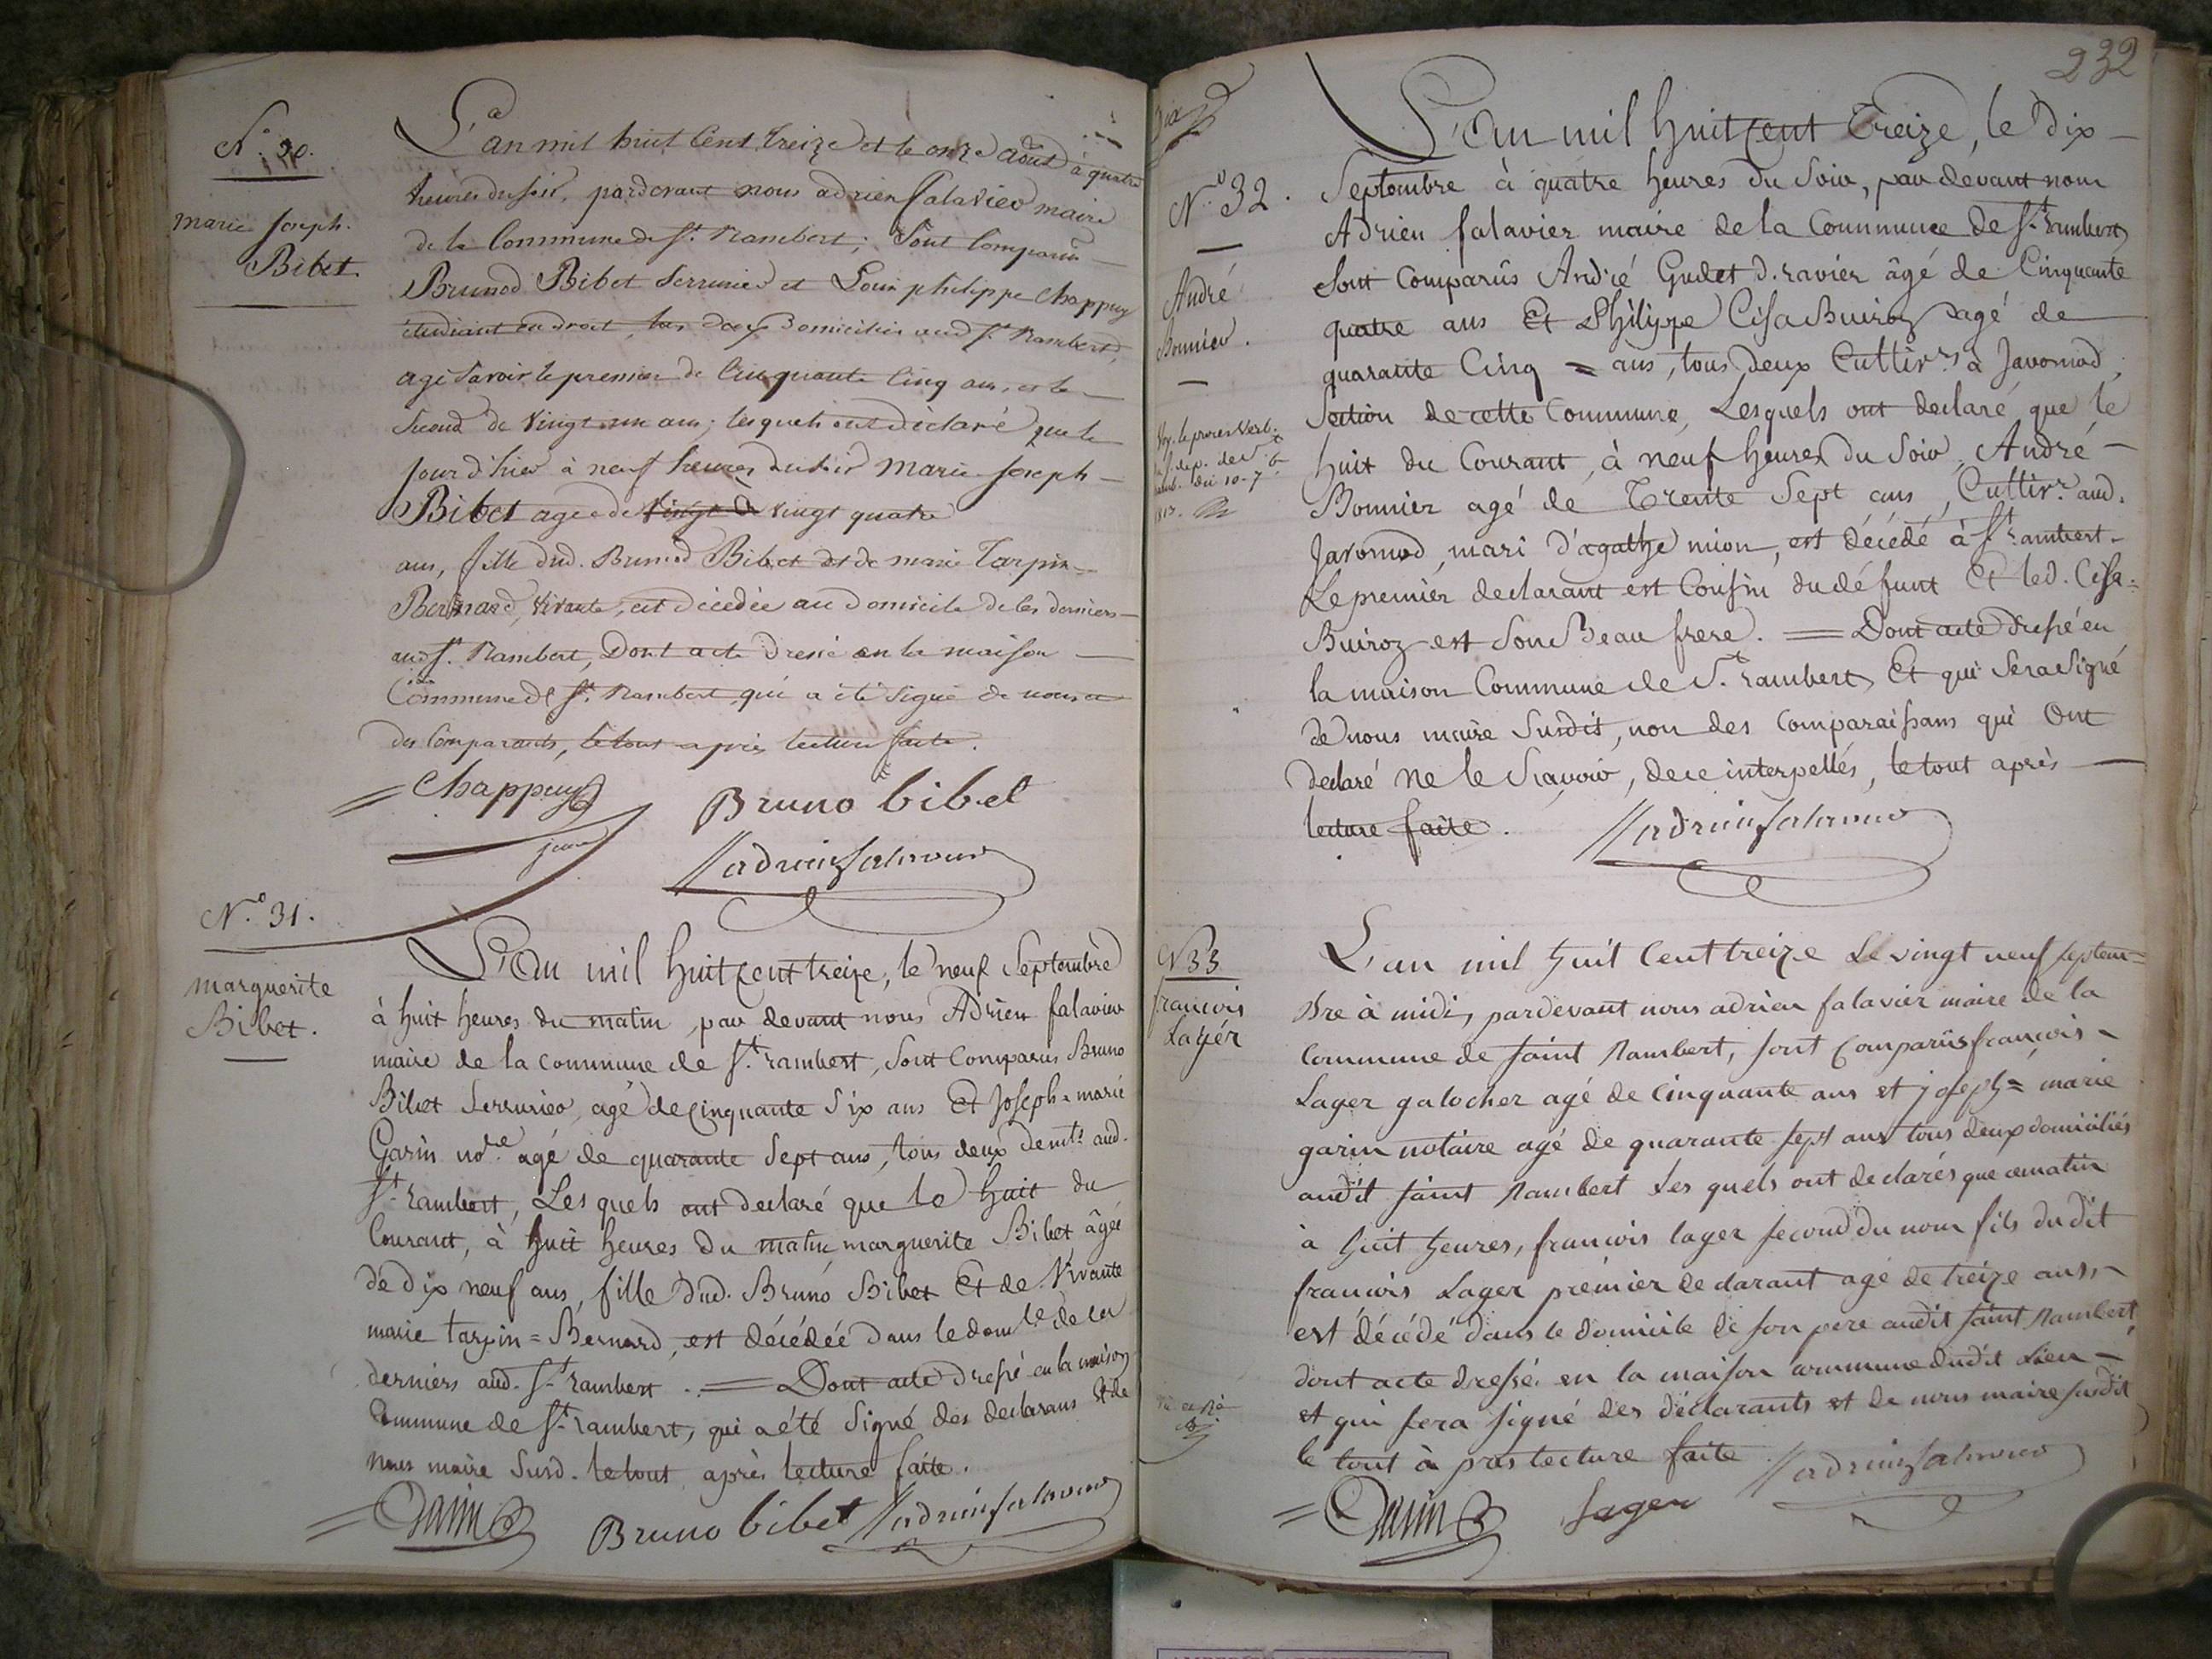 N.º 30.
Marie Joseph.
Bibet.
L'an mil huit Cent treize et le onze août à quatre
heures du soir, pardevant nous adrien falavier maire
de la Commune de St. Rambert; Sont Comparus
Brunod Bibet Serrurier et Louis philippe Chappuy
étudiant en droit, tous deux Domiciliés aud St. Rambert,
agé Savoir le premier de Cinquante Cinq ans, et le
Second de vingt un ans; lesquels ont déclaré que le
jour d'hier à neuf heures du soir Marie Joseph
Bibet agée de vingt quatre
ans, fille dud. Brunod Bibet et de marie Tarpin
Bernard, vivante, est décédée au domicile de les derniers
aud St. Rambert, Dont acte dressé en la maison
Commune de St. Rambert qui a été signé de nous et
des Comparants, le tout après lecture faite.
Chappuy
jeune
Bruno bibet
adrien falavier
N.º 31.
marguerite
Bibet.
L'An mil huit Cent treize, le neuf Septembre
à huit heures du matin, par devant nous Adrien falavier
maire de la commune de St. rambert, Sont Comparus Bruno
Bibet Serrurier, agé de Cinquante Six ans Et Joseph-marie
Garin nore. agé de quarante Sept ans, tous deux demts. aud.
St. rambert, Lesquels ont declaré que le huit du
Courant, à huit heures du matin marguerite Bibet âgée
de dix neuf ans, fille dud. Bruno Bibet Et de vivante
marie tarpin=Bernard, est décédée dans le domle. de ces
derniers aud. St. rambert. = Dont acte dressé en la maison
Commune de St. rambert, qui a été Signé des declarans et de
nous maire Susd. le tout après lecture faite.
Garin
Bruno bibet
adrien falavier
232
N.º 32.
André
Bonnier.
Voy. le proces Verb.
1813.
L'An mil huit Cent Treize, le Dix
Septembre à quatre heures du Soir, par devant nous
Adrien falavier maire de la Commune de St. rambert
Sont Comparûs André Gudet d. ravier âgé de Cinquante
quatre ans Et Philippe Cisa Buiroz agé de
quarante Cinq = ans, tous deux Cultivrs. à Javornod,
Section de cette Commune, Lesquels ont declaré que le
huit du Courant, à neuf heures du Soir, André
Bonnier agé de Trente Sept ans, Cultivr. aud.
Javornod, mari d'agathe mion, est décédé à St. rambert.
Le premier declarant est Cousin du défunt Et led. Cisa=
Buiroz est Son Beau frere. = Dont acte dressé en
la maison Commune de St. rambert, Et qui Sera Signé
de nous maire Susdit, non des Comparaissans qui Ont
declaré ne le Scavoir, de ce interpellés, le tout après
lecture faite.
adrien falavier
N 33
francois
Lagér
L'an mil huit Cent treize Le vingt neuf septem=
bre à midi, pardevant nous adrien falavier maire de la
Commune de saint Rambert, sont Comparüs françois
Lager galocher agé de Cinquante ans et joseph=marie
garin notaire agé de quarante sept ans tous deux domiciliés
audit saint Rambert Les quels ont declarés que ce matin
à huit heures, francois lager second du nom fils du dit
francois Lager prémier declarant agé de treize ans,
est décédé dans le domicile de son pere audit saint Rambert,
dont acte dressé en la maison commune dudit Lieu
et qui sera signé des déclarants et de nous maire susdit
le tout à prés lecture faite
adrien falavier
Garin
lager